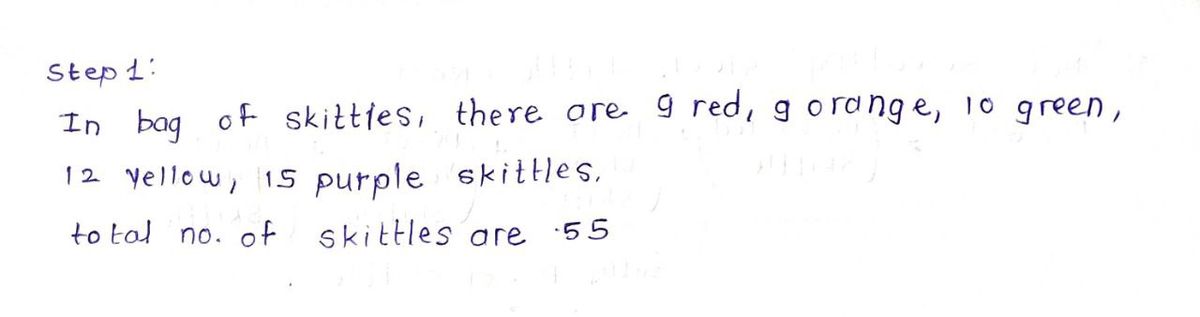 Step 1:
In bag of skittles, there are 9 red, 9 orange, 10 green,
12 yellow, 15 purple skittles.
total no. of skittles are 55